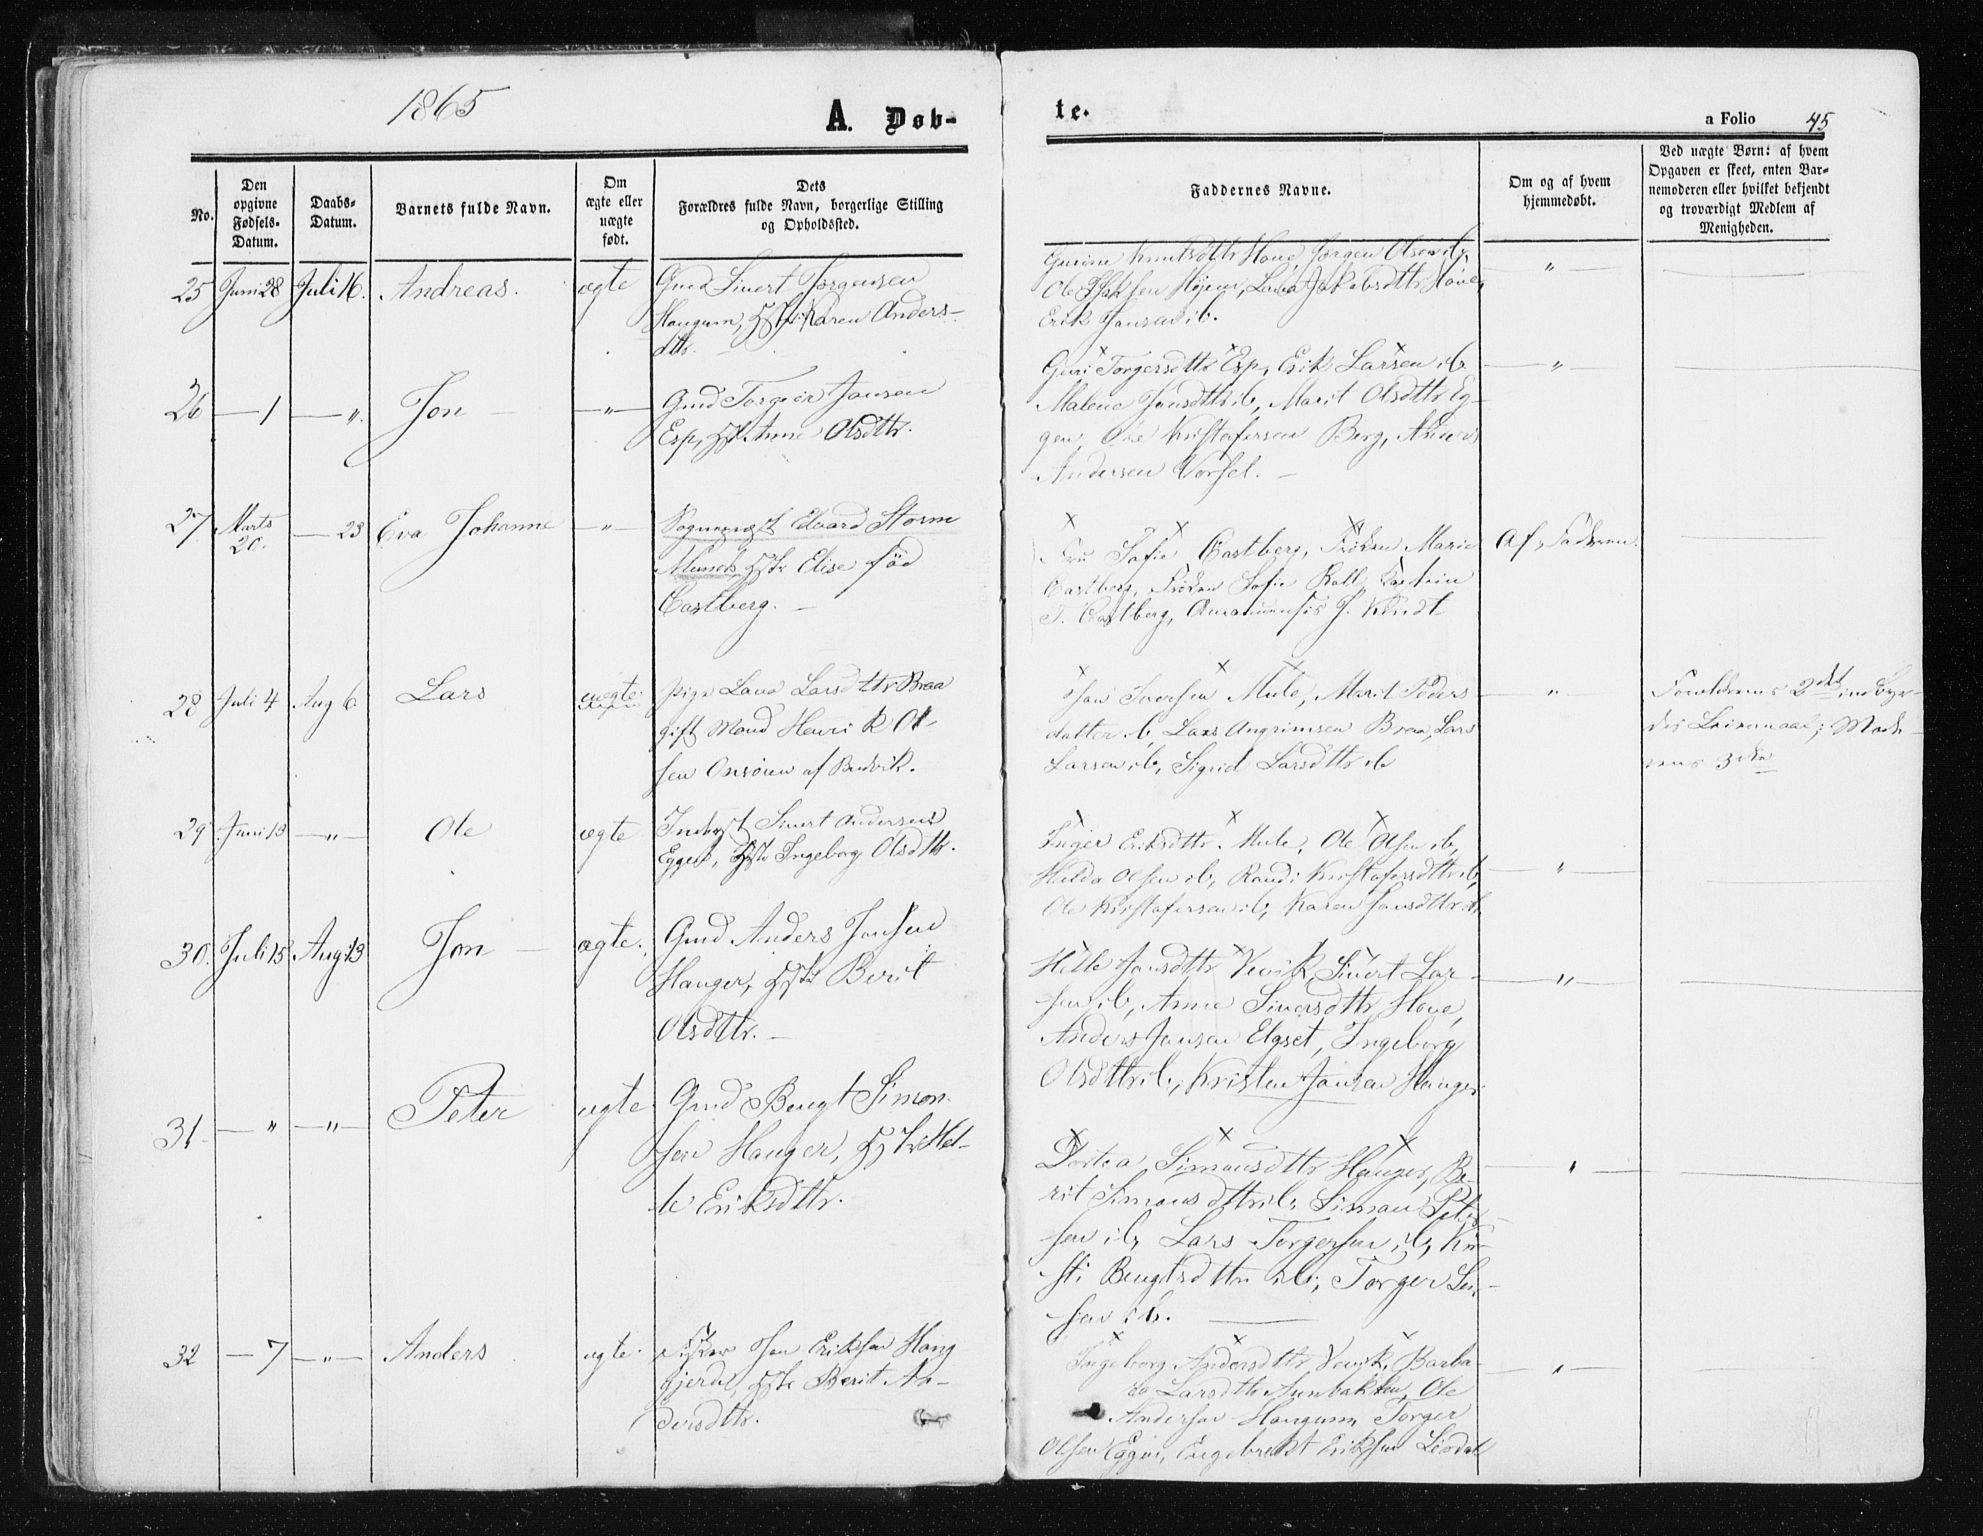 1865
A. Døb-
te.
a Folio 45
No.
Den
opgivne
Fødsels-
Datum.
Daabs-
Datum.
Barnets fulde Navn.
Om
ægte eller
uægte
født.
Dets
Forældres fulde Navn, borgerlige Stilling
og Opholdssted.
Faddernes Navne.
Om og af hvem
hjemmedøbt.
Ved uægte Børn: af hvem
Opgaven er skeet, enten Bar-
nemoderen eller hvilket bekjendt
og troværdigt Medlem af
Menigheden.
25 Juni 28 Juli 16. Andreas. ægte
Gmd Sivert Jørgensen
Haugum, Hstr Karen Anders-
dttr.
Gurine Knutsdttr Hove, Jørgen Olsen ib,
Ole Højem, Jakobsdttr Hove,
Erik Jonsen ib.
26 — 1 — „ Jon — „ —
Gmd Torgeir Jonsen
Esp, Hst Anne Olsdttr.
Guri Torgersdttr Esp, Erik Larsen ib
Malene Jonsdttr ib, Marit Olsdttr Eg-
gen, Ole Kristofersen Berg, Anders
Andersen Vorset. —
27 Marts
20. — 23 Eva Johanne — „ —
Sognepræst Edvard Storm
Munch Hstr Elise fød
Castberg. —
Fru Sofie Castberg, Frøken Marie
Castberg, Frøken Sofie Roll, Kaptein
T. Castberg, Amanuensis J. Kindt
Af Faderen.
28 Juli 4 Aug 6 Lars uægte
Pige Lava Larsdttr Braa
gift Mand Henrik Ol-
sen Onsöien af Budvik.
Jon Iversen Mule, Marit Peders
datter ib, Lars Angrimsen Braa, Lars
Larsen ib, Sigrid Larsdttr ib
„
Forældrenes 2det indbyr-
des Leiermaal; Mode-
rens 3die
29 Juni 13 — „ — Ole ægte
Inderst Sivert Andersen
Eggen, Hstr Ingeborg Olsdttr.
Inger Eriksdttr. Mule, Ole Olsen ib,
Olsen ib, Randi Kristofersdttr ib,
Ole Kristofersen ib, Karen Jonsdttr ib,
„
30. Juli 15 Aug 13 Jon — ægte.
Gmd Anders Jonsen
Hauger, Hstr Berit
Olsdttr. —
Jonsdttr Vevik, Sivert Lar-
sen ib, Anne Siversdttr Hove,
Anders Jonsen Elgset, Ingeborg
Olsdttr ib, Kristen Jonsen Hauger
„
31 — „ — „ — Peter ægte
Gmd Bengt Simon-
sen Hauger, Hstr Hel-
le Eriksdttr.
Dortea Simonsdttr Hauger, Be-
rit Simonsdttr ib, Simon Peter-
sen ib, Lars Torgersen ib, Kir-
sti Bengtsdttr ib, Torger
sen ib.
„
32 — 7 — „ — Anders ægte
Jon Eriksen Haug
gjerdet, Hstr Berit An-
dersdttr.
Ingeborg Andersdttr Vevik, Barba-
ro Larsdttr Aunbakken, Ole
Andersen Haugum, Torger
Olsen Eggen, Engebrekt Eriksen
„